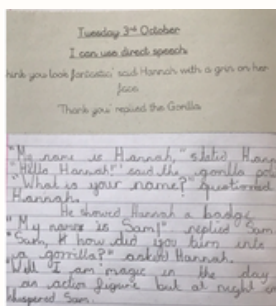 Tuesday 3rd October
I can use direct speech
think you look fantastic' said Hannah with a grin on her
face
'Thank you' replied the Gorilla
"My name is Hannah," stated Hann
"Hello Hannah!" said the gorilla
"What is your name?" questioned
Hannah.
He showed Hannah a badge
"My name is Sam!" replied Sam
"Sam, how did you turn into
a gorilla?" asked Hannah.
"Well I am magic in the day
an action figure but at night
whispered Sam.